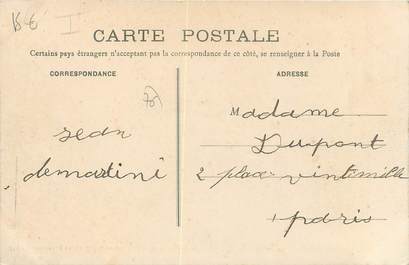 CARTE POSTALE
Certains pays étrangers n'acceptant pas la correspondance de ce côté, se renseigner à la Poste
CORRESPONDANCE
ADRESSE
Madame
Jean
Dupont
demartini
2 place vintimille
paris